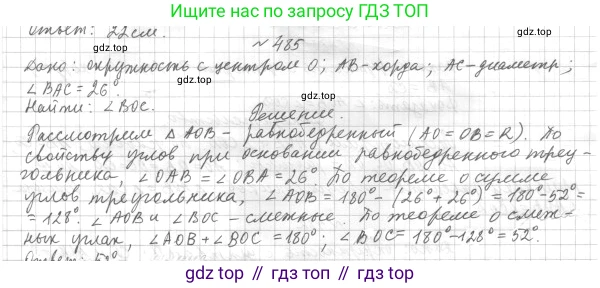 Ищите нас по запросу ГДЗ ТОП
Ответ: 22 см.
gdz.top
№ 485
Дано: окружность с центром О; АВ-хорда; АС-диаметр;
∠BAC = 26°.
Найти: ∠BOC.
Решение.
Рассмотрим △ АОВ - равнобедренный (АО = ОВ = R). По
свойству углов при основании равнобедренного треу-
гольника, ∠OAB = ∠OBA = 26°. По теореме о сумме
углов треугольника, ∠AOB = 180° - (26° + 26°) = 180° - 52° =
= 128°. ∠AOB и ∠BOC - смежные. По теореме о смеж-
ных углах, ∠AOB + ∠BOC = 180°; ∠BOC = 180° - 128° = 52°.
gdz.top
gdz top // гдз топ // gdz top // гдз топ